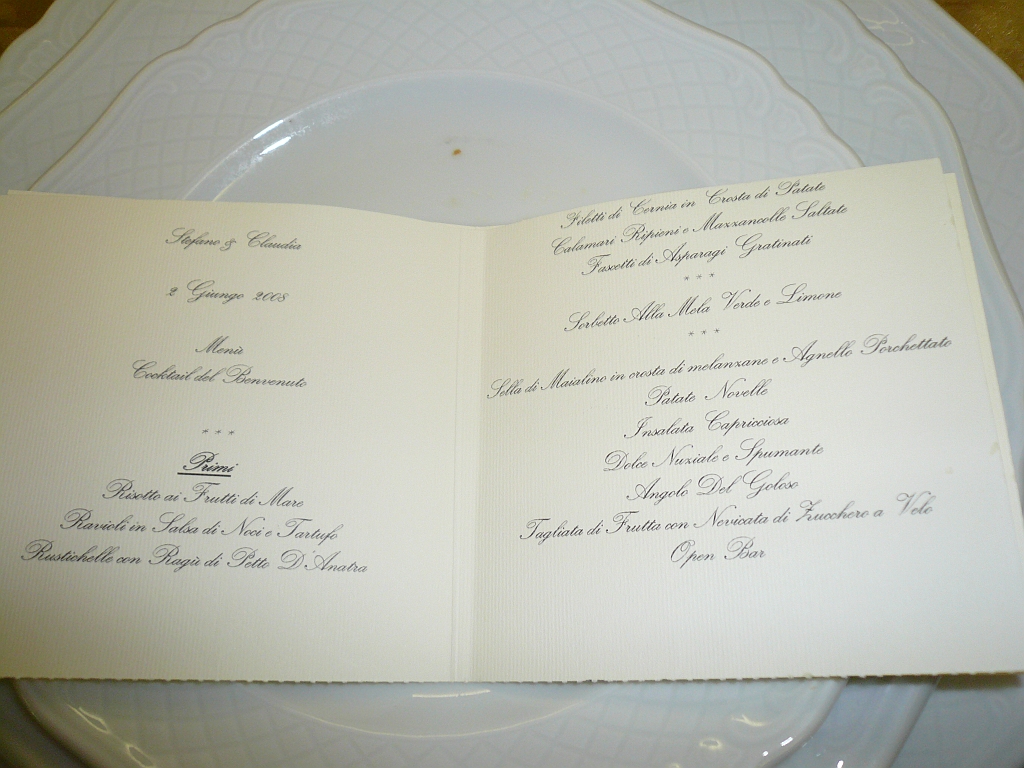 Stefano & Claudia
2 Giungo 2008
Menù
Cocktail del Benvenuto
* * *
Primi
Risotto ai Frutti di Mare
Ravioli in Salsa di Noci e Tartufo
Rustichelle con Ragù di Petto D'Anatra
Filetti di Cernia in Crosta di Patate
Calamari Ripieni e Mazzancolle Saltate
Fascetti di Asparagi Gratinati
* * *
Sorbetto Alla Mela Verde e Limone
* * *
Sella di Maialino in crosta di melanzane e Agnello Porchettato
Patate Novelle
Insalata Capricciosa
Dolce Nuziale e Spumante
Angolo Del Goloso
Tagliata di Frutta con Nevicata di Zucchero a Velo
Open Bar